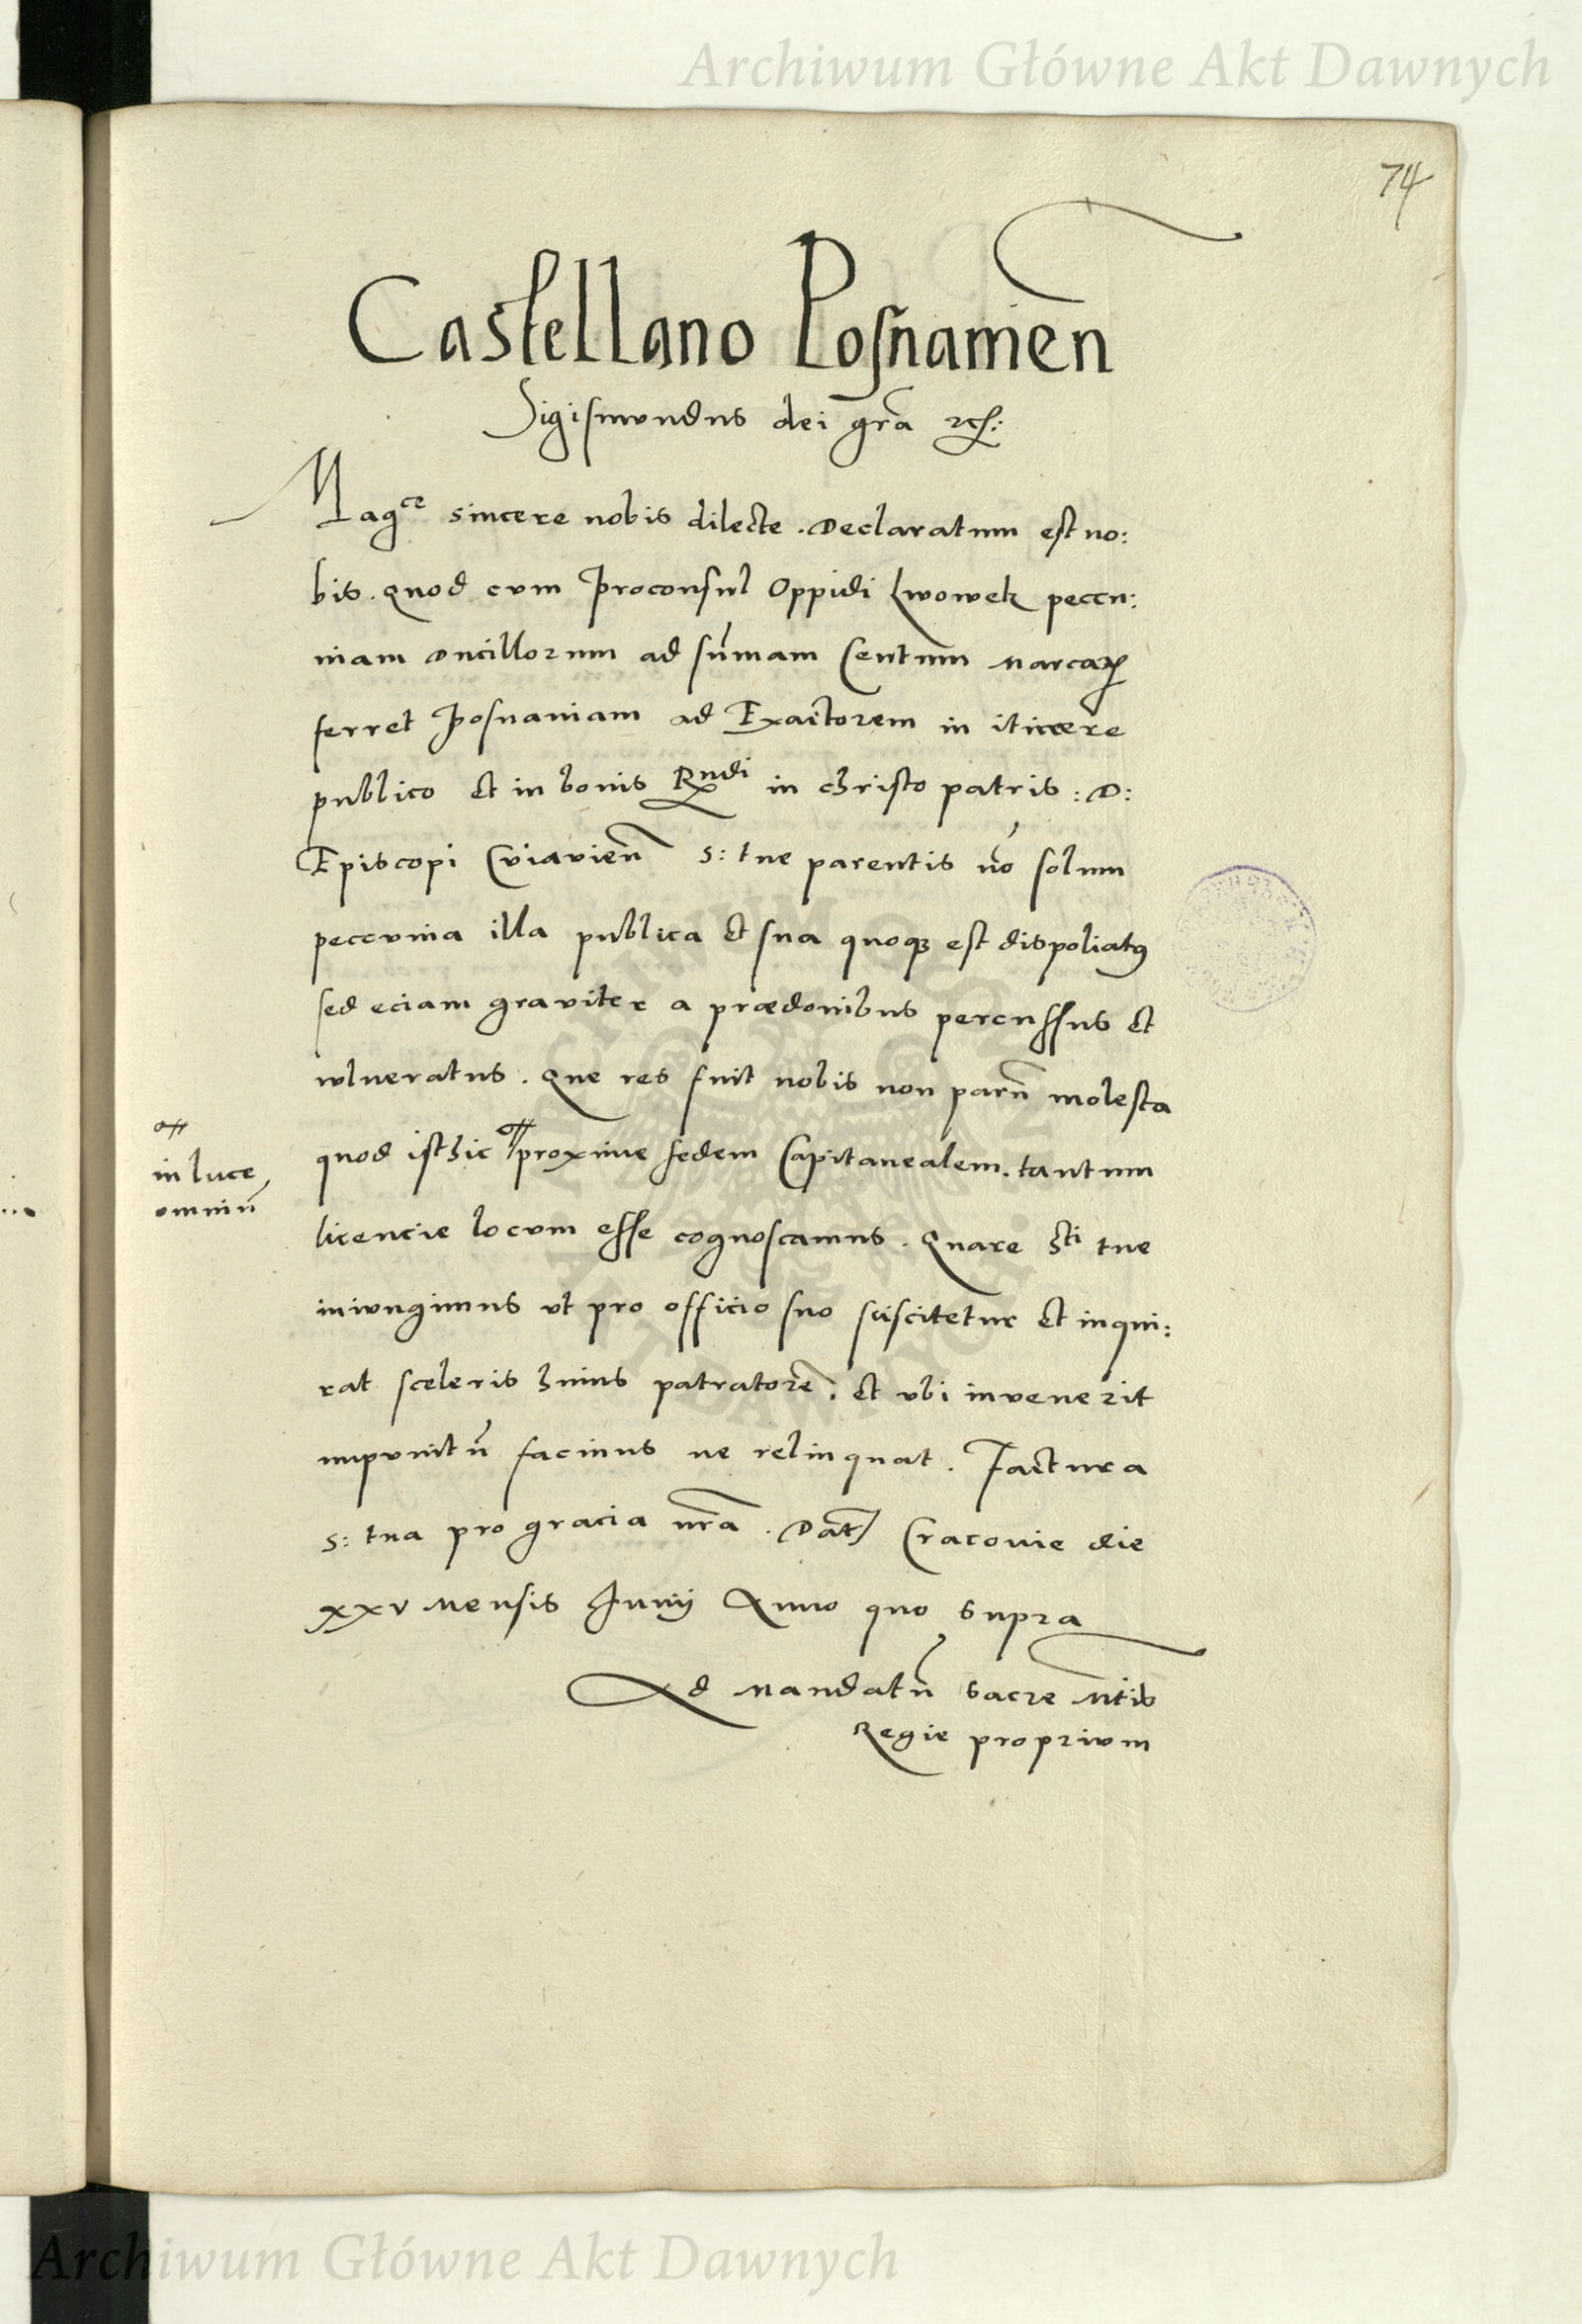 Archiwum Główne Akt Dawnych
74
Castellano Posnanien̄
Sigismundus dei gr̃a etc:
Magce sincere nobis dilecte. Declaratum est no:
bis. quod cum Proconsul Oppidi Lwowek peccu:
niam ducillorum ad sum̃am Centum marcaꝝ
ferret Posnaniam ad Exactorem in itinere
publico et in bonis Rndi in christo patris: D:
Episcopi Cuiavien̄ s: tue parentis nõ solum
peccunia illa publica et sua quoqꝫ est dispoliatꝰ
sed eciam graviter a prædonibus percussus et
vulneratus. Que res fuit nobis non parũ molesta
quod isthic proxime sedem Capitanealem. tantum
in luce
omniũ
licencie locum esse cognoscamus. Quare Sti tue
iniungimus ut pro officio suo sciscitetur et inqui:
rat sceleris huius patratorẽ. et ubi invenerit
impunitũ facinus ne relinquat. Factura
s: tua pro gracia nr̃a. Dat̃ Cracovie die
xxv mensis Junij Anno quo supra
Ad mandatũ Sacre Mtis
Regie proprium
Archiwum Główne Akt Dawnych